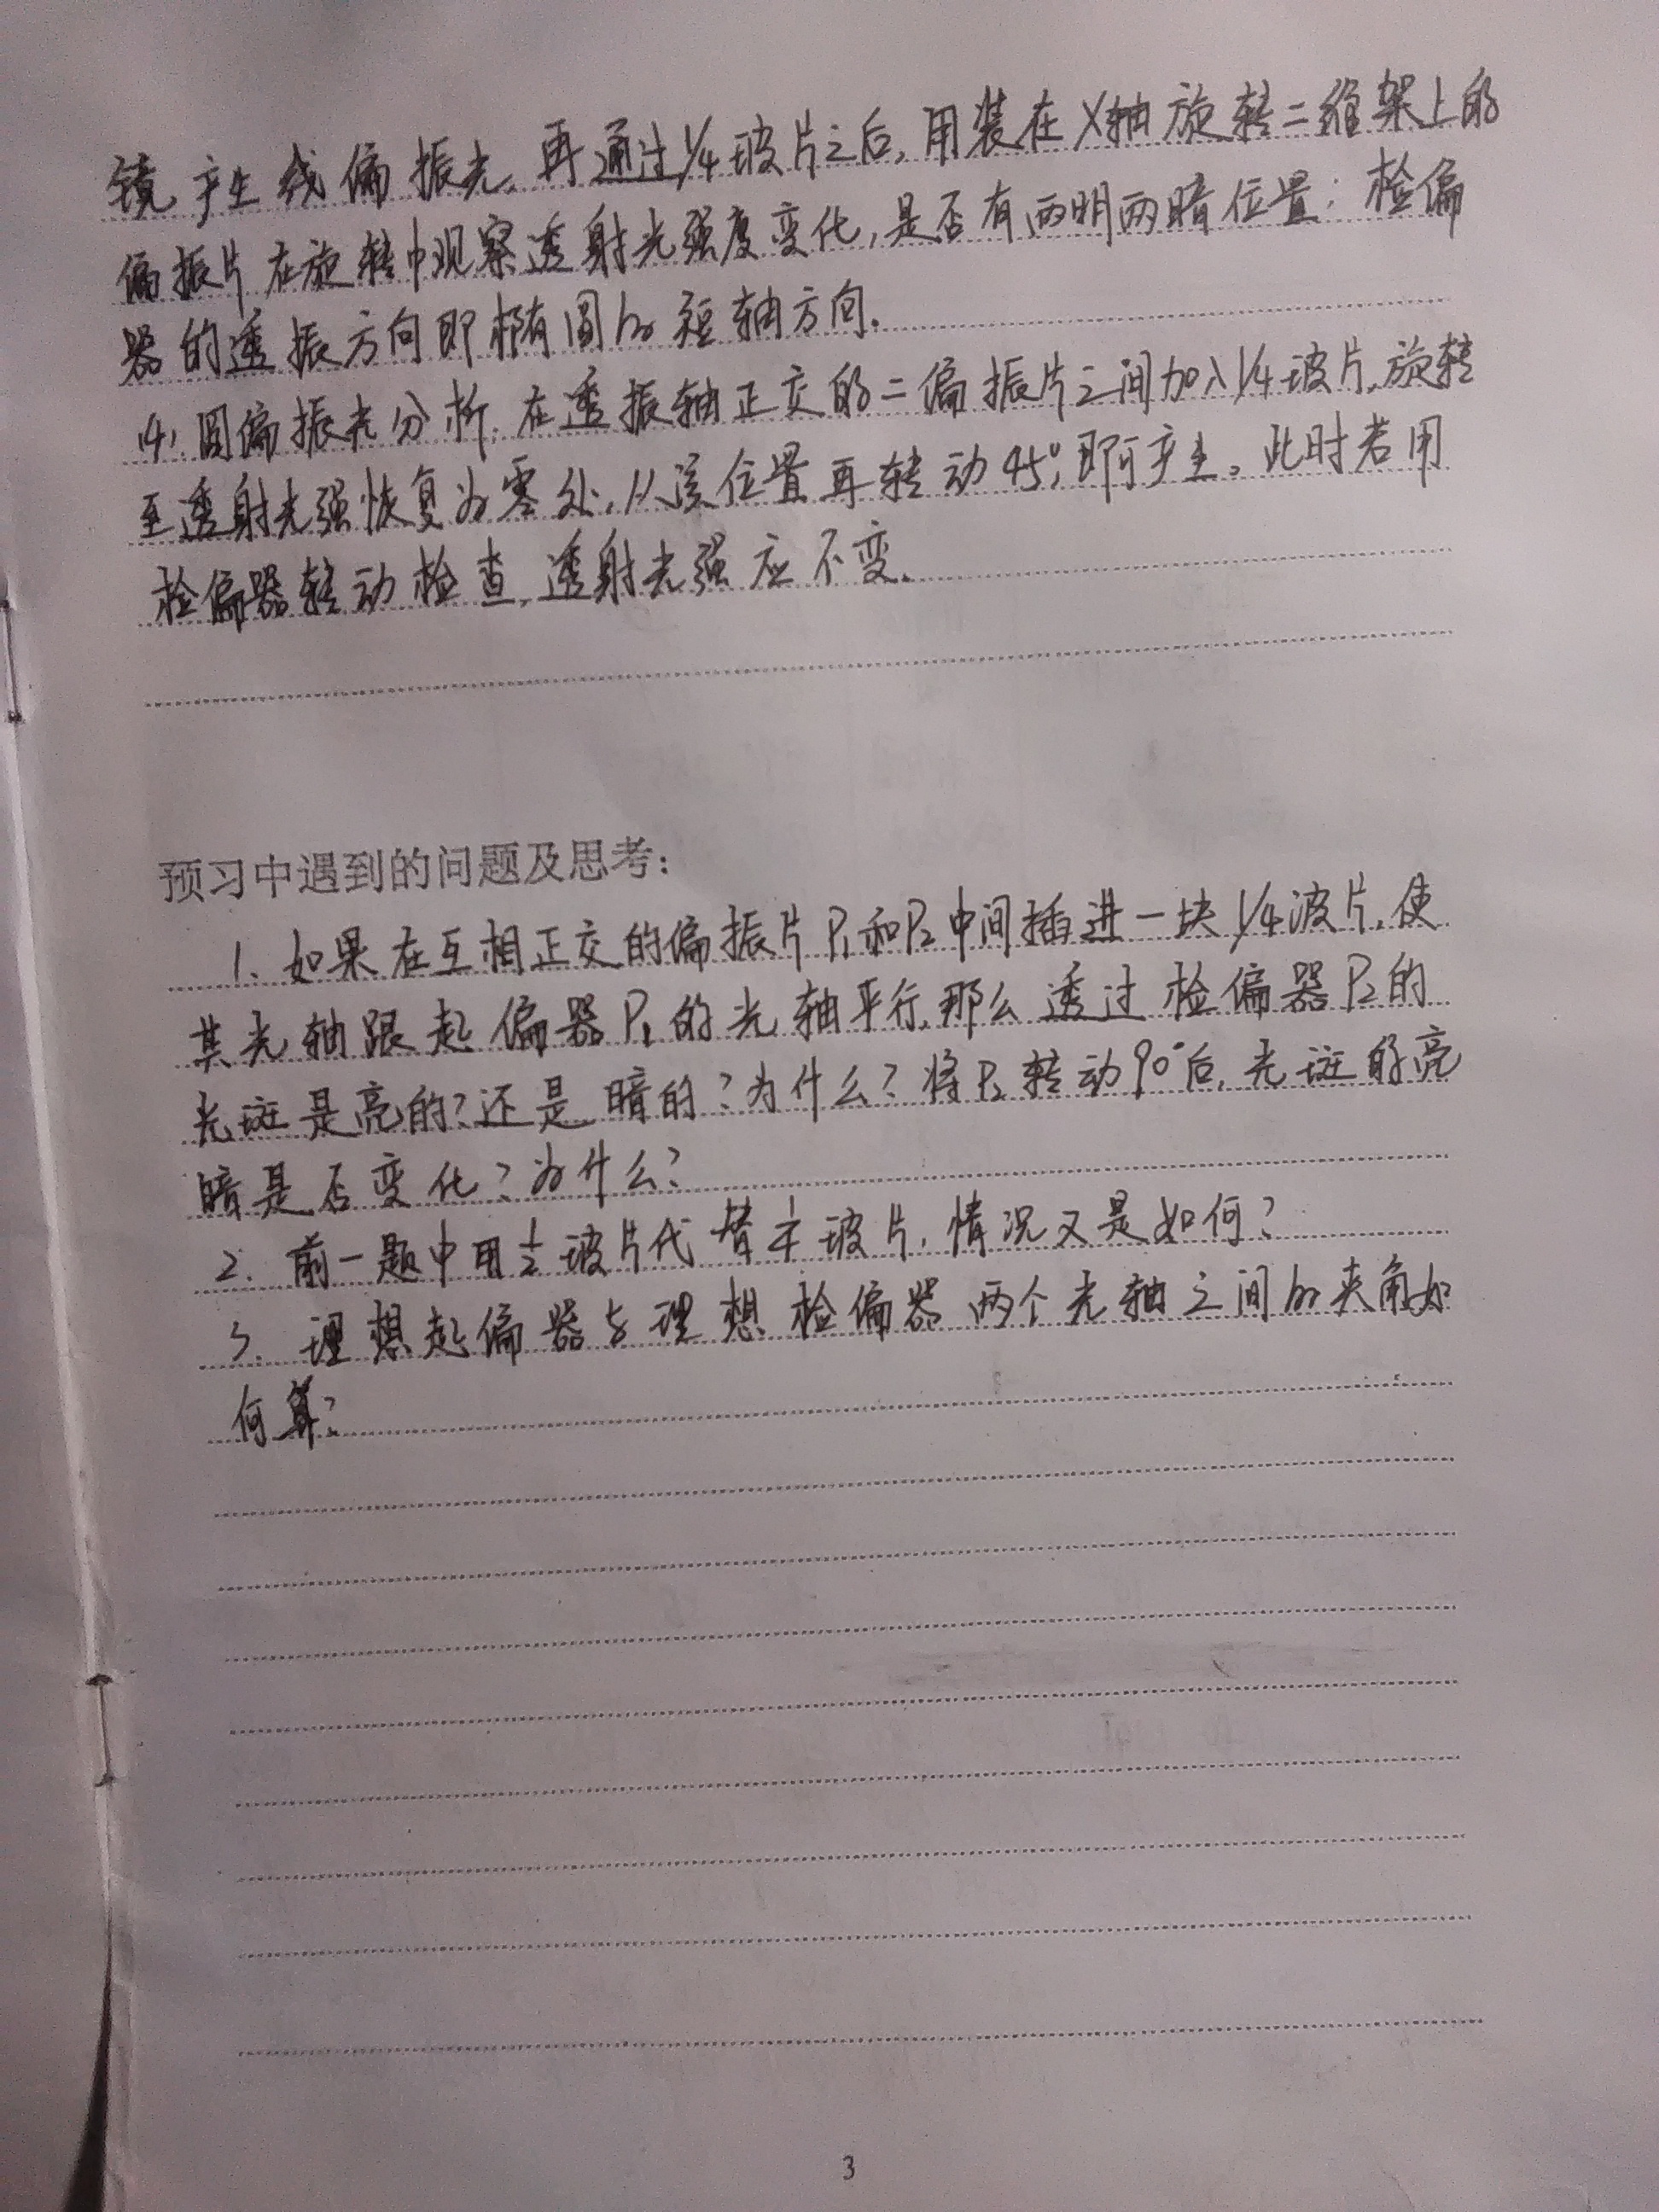 镜产生线偏振光，再通过1/4玻片之后，用装在X轴旋转二维架上的
偏振片在旋转中观察透射光强度变化，是否有两明两暗位置；检偏
器的透振方向即椭圆的短轴方向。
(4). 圆偏振光分析，在透振轴正交的二偏振片之间加入1/4玻片，旋转
至透射光强恢复为零处，从该位置再转动45°，即可产生。此时若用
检偏器转动检查，透射光强应不变。
预习中遇到的问题及思考：
1、如果在互相正交的偏振片P₁和P₂中间插进一块1/4波片，使
其光轴跟起偏器P₁的光轴平行，那么透过检偏器P₂的
光斑是亮的？还是暗的？为什么？将P₂转动90°后，光斑的亮
暗是否变化？为什么？
2、前一题中用1/2玻片代替1/4玻片，情况又是如何？
3、理想起偏器与理想检偏器两个光轴之间的夹角如
何算？
3